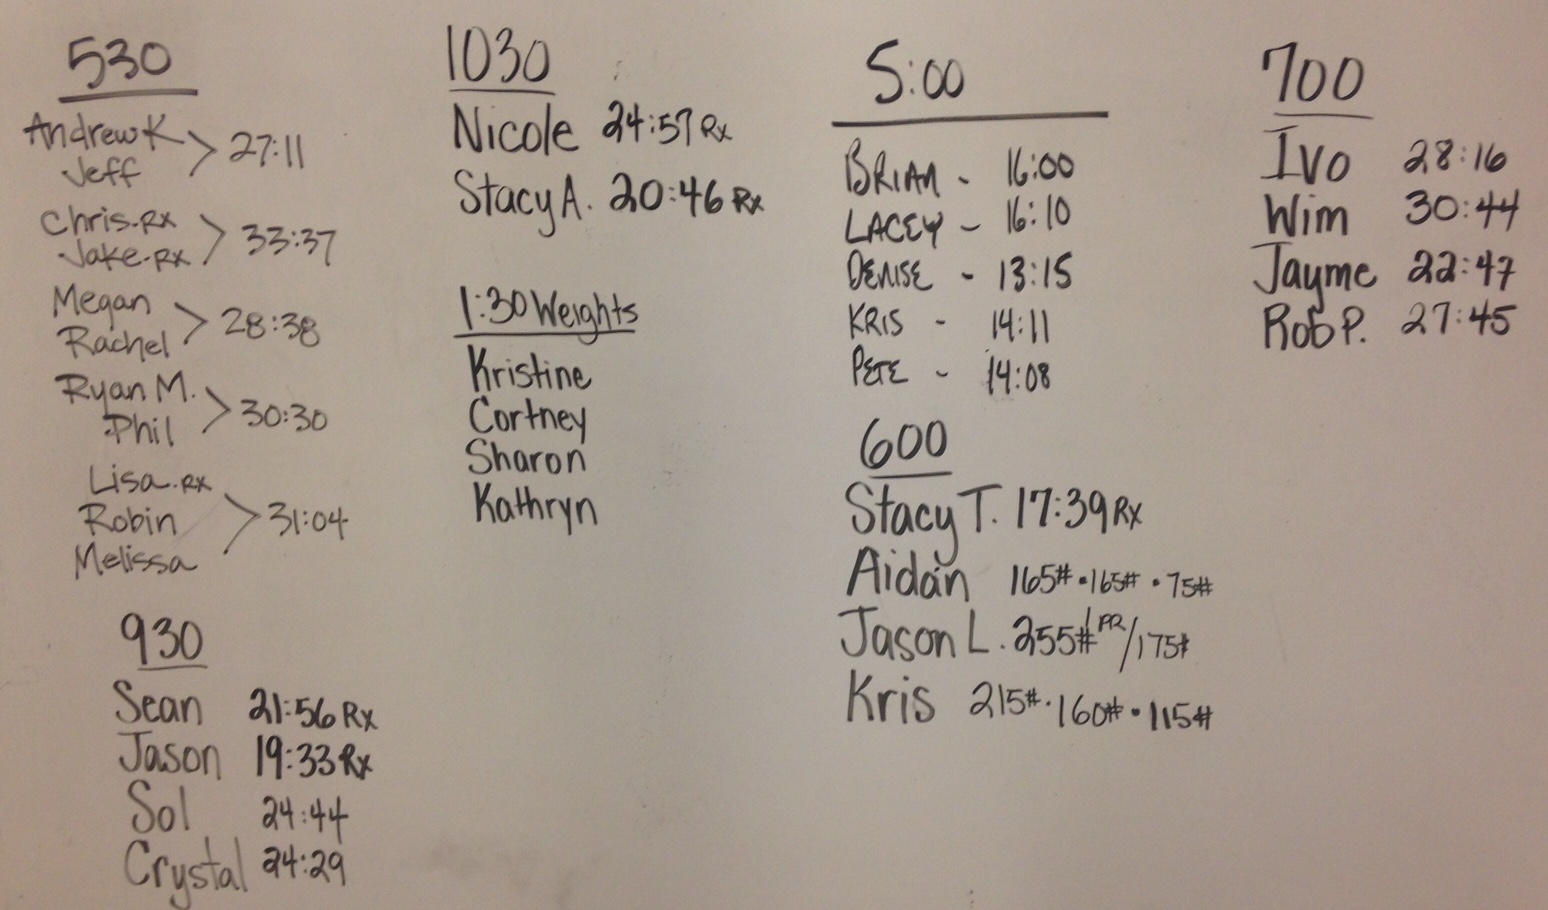 530
Andrew K
Jeff > 27:11
Chris. Rx
Jake. Rx > 33:37
Megan
Rachel > 28:38
Ryan M.
Phil > 30:30
Lisa. Rx
Robin > 31:04
Melissa
930
Sean 21:56 Rx
Jason 19:33 Rx
Sol 24:44
Crystal 24:29
1030
Nicole 24:57 Rx
Stacy A. 20:46 Rx
1:30 Weights
Kristine
Cortney
Sharon
Kathryn
5:00
BRIAN - 16:00
LACEY - 16:10
DENISE - 13:15
KRIS - 14:11
PETE - 14:08
600
Stacy T. 17:39 Rx
Aidan 165# • 165# • 75#
Jason L. 255# PR / 175#
Kris 215# • 160# • 115#
700
Ivo 28:16
Wim 30:44
Jayme 22:47
Rob P. 27:45